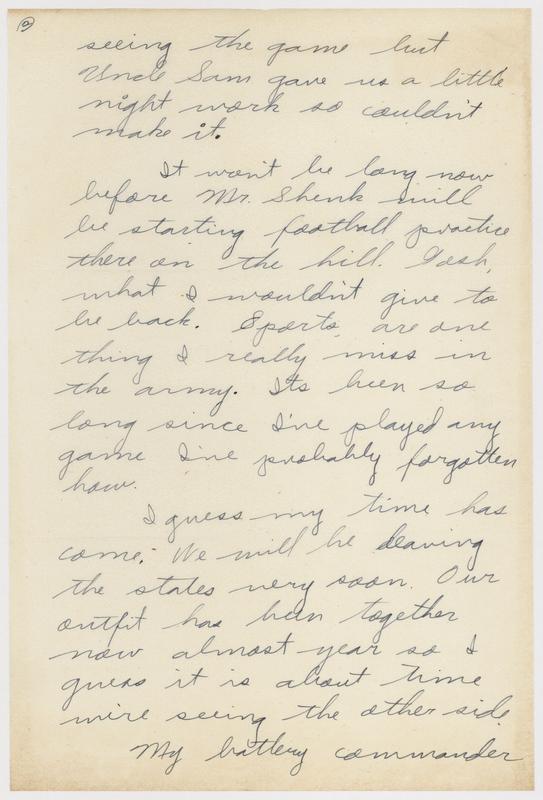 2
seeing the game but
Uncle Sam gave us a little
night work so couldn't
make it.
It won't be long now
before Mr. Shenk will
be starting football practice
there on the hill. Gosh,
what I wouldn't give to
be back. Sports are one
thing I really miss in
the army. Its been so
long since I've played any
game I've probably forgotten
how.
I guess my time has
come. We will be leaving
the states very soon. Our
outfit has been together
now almost year so I
guess it is about time
we're seeing the other side.
My battery commander